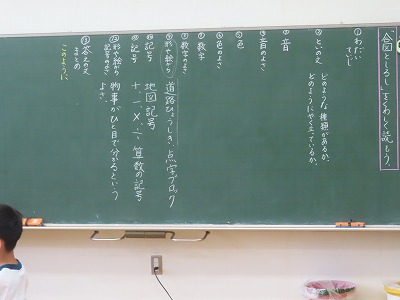 「合図としるし」をくわしく読もう。
①わだい
だいじ
②といの文
どのような種類があるか。
どのようにやく立っているか。
③音
④音のよさ
⑤色
⑥色のよさ
⑦数字
⑧数字のよさ
⑨形や絵から 道路ひょうしき、点字ブロック
⑩記号 地図記号
⑪記号 +、-、×、÷ 算数の記号
⑫形や絵から 物事がひと目で分かるという
記号のよさ よさ。
⑬答えの文
まとめ
このように